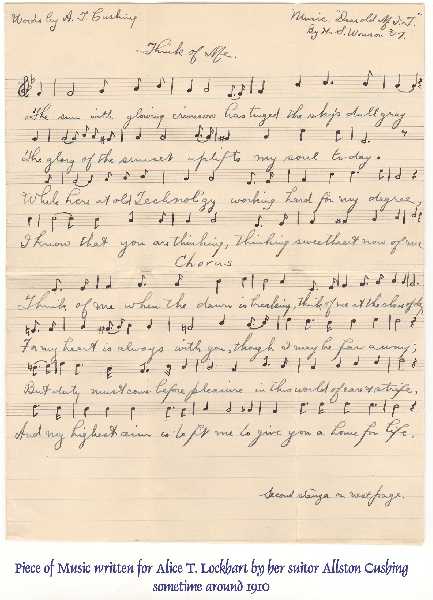 Words by A. T. Cushing
Music "Dear old M.I.T."
By H. S. '07.
Think of Me.
The sun with glowing crimson has tinged the sky's dull gray
The glory of the sunset uplifts my soul to-day.
While here at old Technology working hard for my degree,
I know that you are thinking, thinking sweetheart now of me.
Chorus
Think of me when the dawn is breaking, think of me at the close of day
For my heart is always with you, though I may be far away;
But duty must come before pleasure in this world of care & strife,
And my highest aim is to fit me to give you a home for life.
Second stanza on next page.
Piece of Music written for Alice T. Lockhart by her suitor Allston Cushing
sometime around 1910